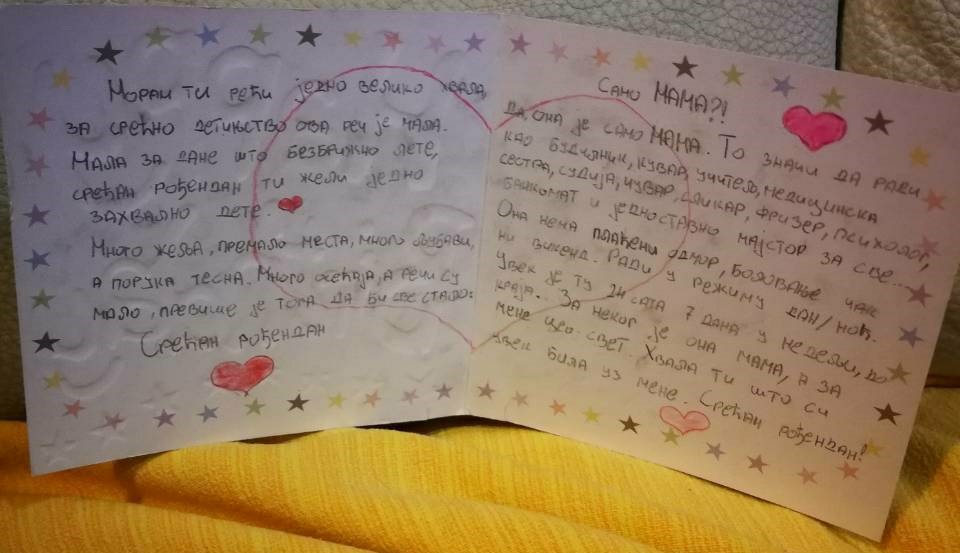 Морам ти рећи једно велико хвала,
за срећно детињство ова реч је мала.
Мала за дане што безбрижно лете,
срећан рођендан ти жели једно
захвално дете.
Много жеља, премало места, много љубави,
а порука тесна. Много осећаја, а речи су
мало, превише је тога да би све стало:
Срећан рођендан
Само МАМА?!
Да, она је само МАМА. То значи да ради
као будилник, кувар, учитељ, медицинска
сестра, судија, чувар, сликар, фризер, психолог,
банкомат и једноставно мајстор за све...
Она нема плаћени одмор, боловање чак
ни викенд. Ради у режиму дан/ноћ.
Увек је ту 24 сата 7 дана у недељи, до
краја. За неког је она мама, а за
мене цео свет. Хвала ти што си
увек била уз мене. Срећан рођендан!